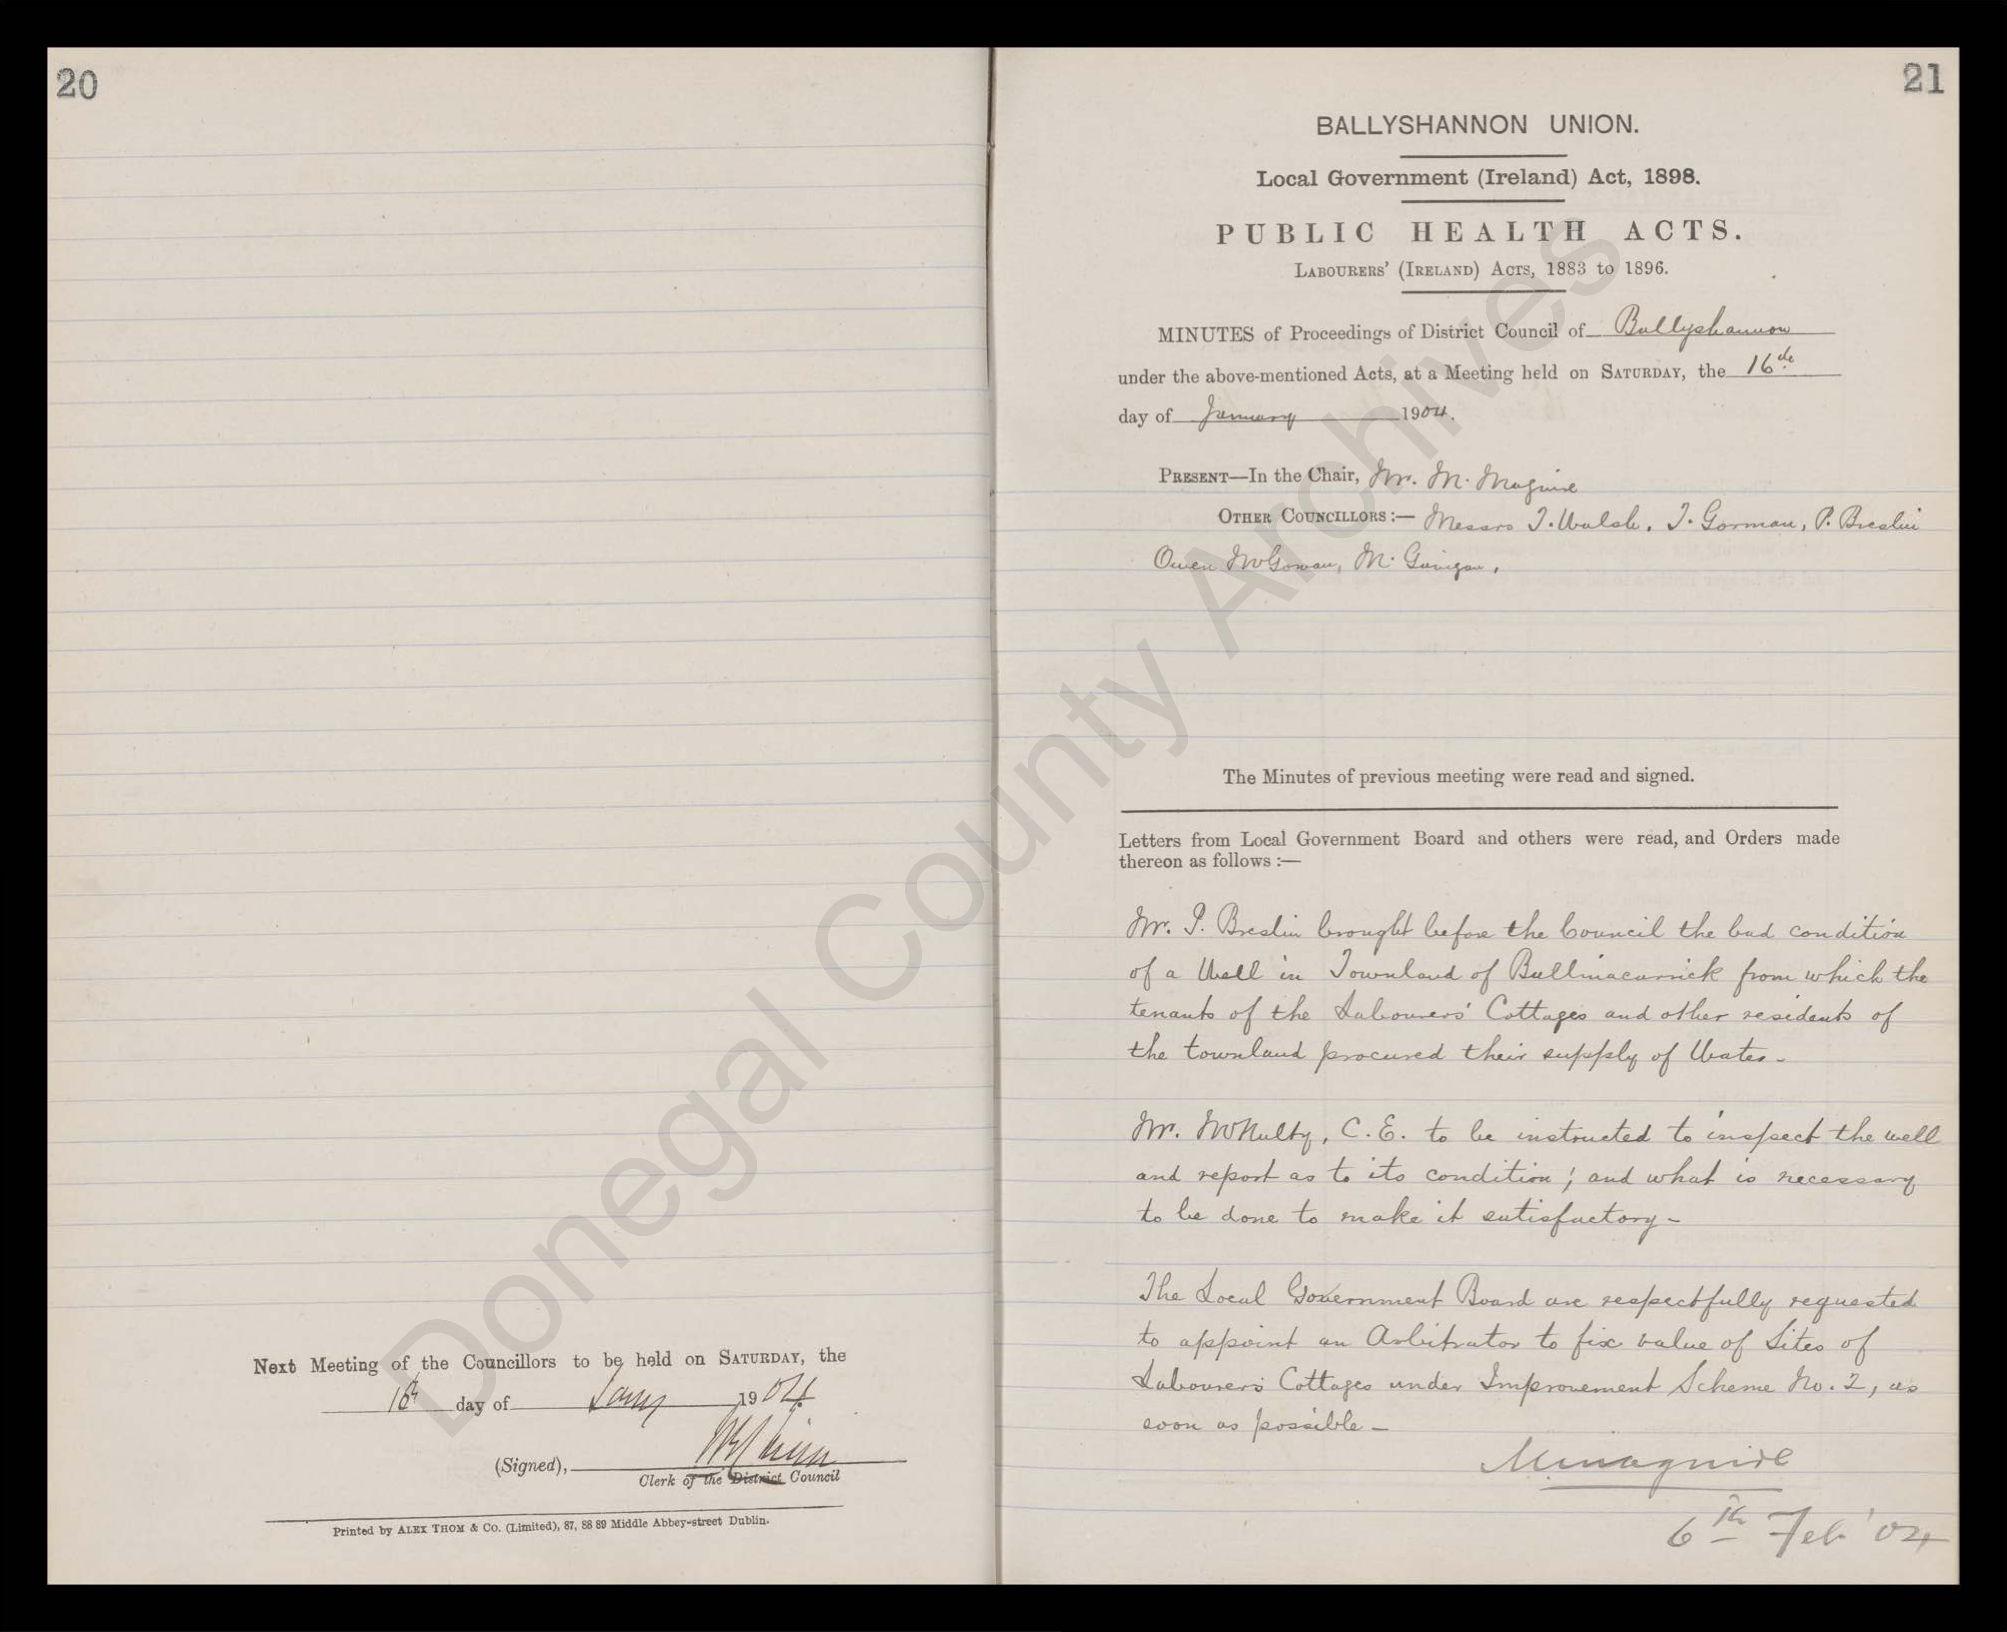 20
Next Meeting of the Councillors to be held on SATURDAY, the
16th day of Jany 1904
(Signed),
Clerk of the District Council
Printed by ALEX THOM & Co. (Limited), 87, 88 89 Middle Abbey-street Dublin.
21
BALLYSHANNON UNION.
Local Government (Ireland) Act, 1898.
PUBLIC HEALTH ACTS.
LABOURERS' (IRELAND) ACTS, 1883 to 1896.
MINUTES of Proceedings of District Council of Ballyshannon
under the above-mentioned Acts, at a Meeting held on SATURDAY, the 16th
day of January 1904.
PRESENT—In the Chair, Mr. M. Maguire
OTHER COUNCILLORS:— Messrs T. Walsh, T. Gorman, P. Breslin
Owen McGowan, M. Gavigan,
The Minutes of previous meeting were read and signed.
Letters from Local Government Board and others were read, and Orders made
thereon as follows:—
Mr. P. Breslin brought before the Council the bad condition
of a Well in Townland of Ballmacarrick from which the
tenants of the Labourers' Cottages and other residents of
the townland procured their supply of Water-
Mr. McNulty, C.E. to be instructed to inspect the well
and report as to its condition; and what is necessary
to be done to make it satisfactory-
The Local Government Board are respectfully requested
to appoint an Arbitrator to fix value of Sites of
Labourers Cottages under Improvement Scheme No. 2, as
soon as possible-
M Maguire
6th Feb '04
Donegal County Archives